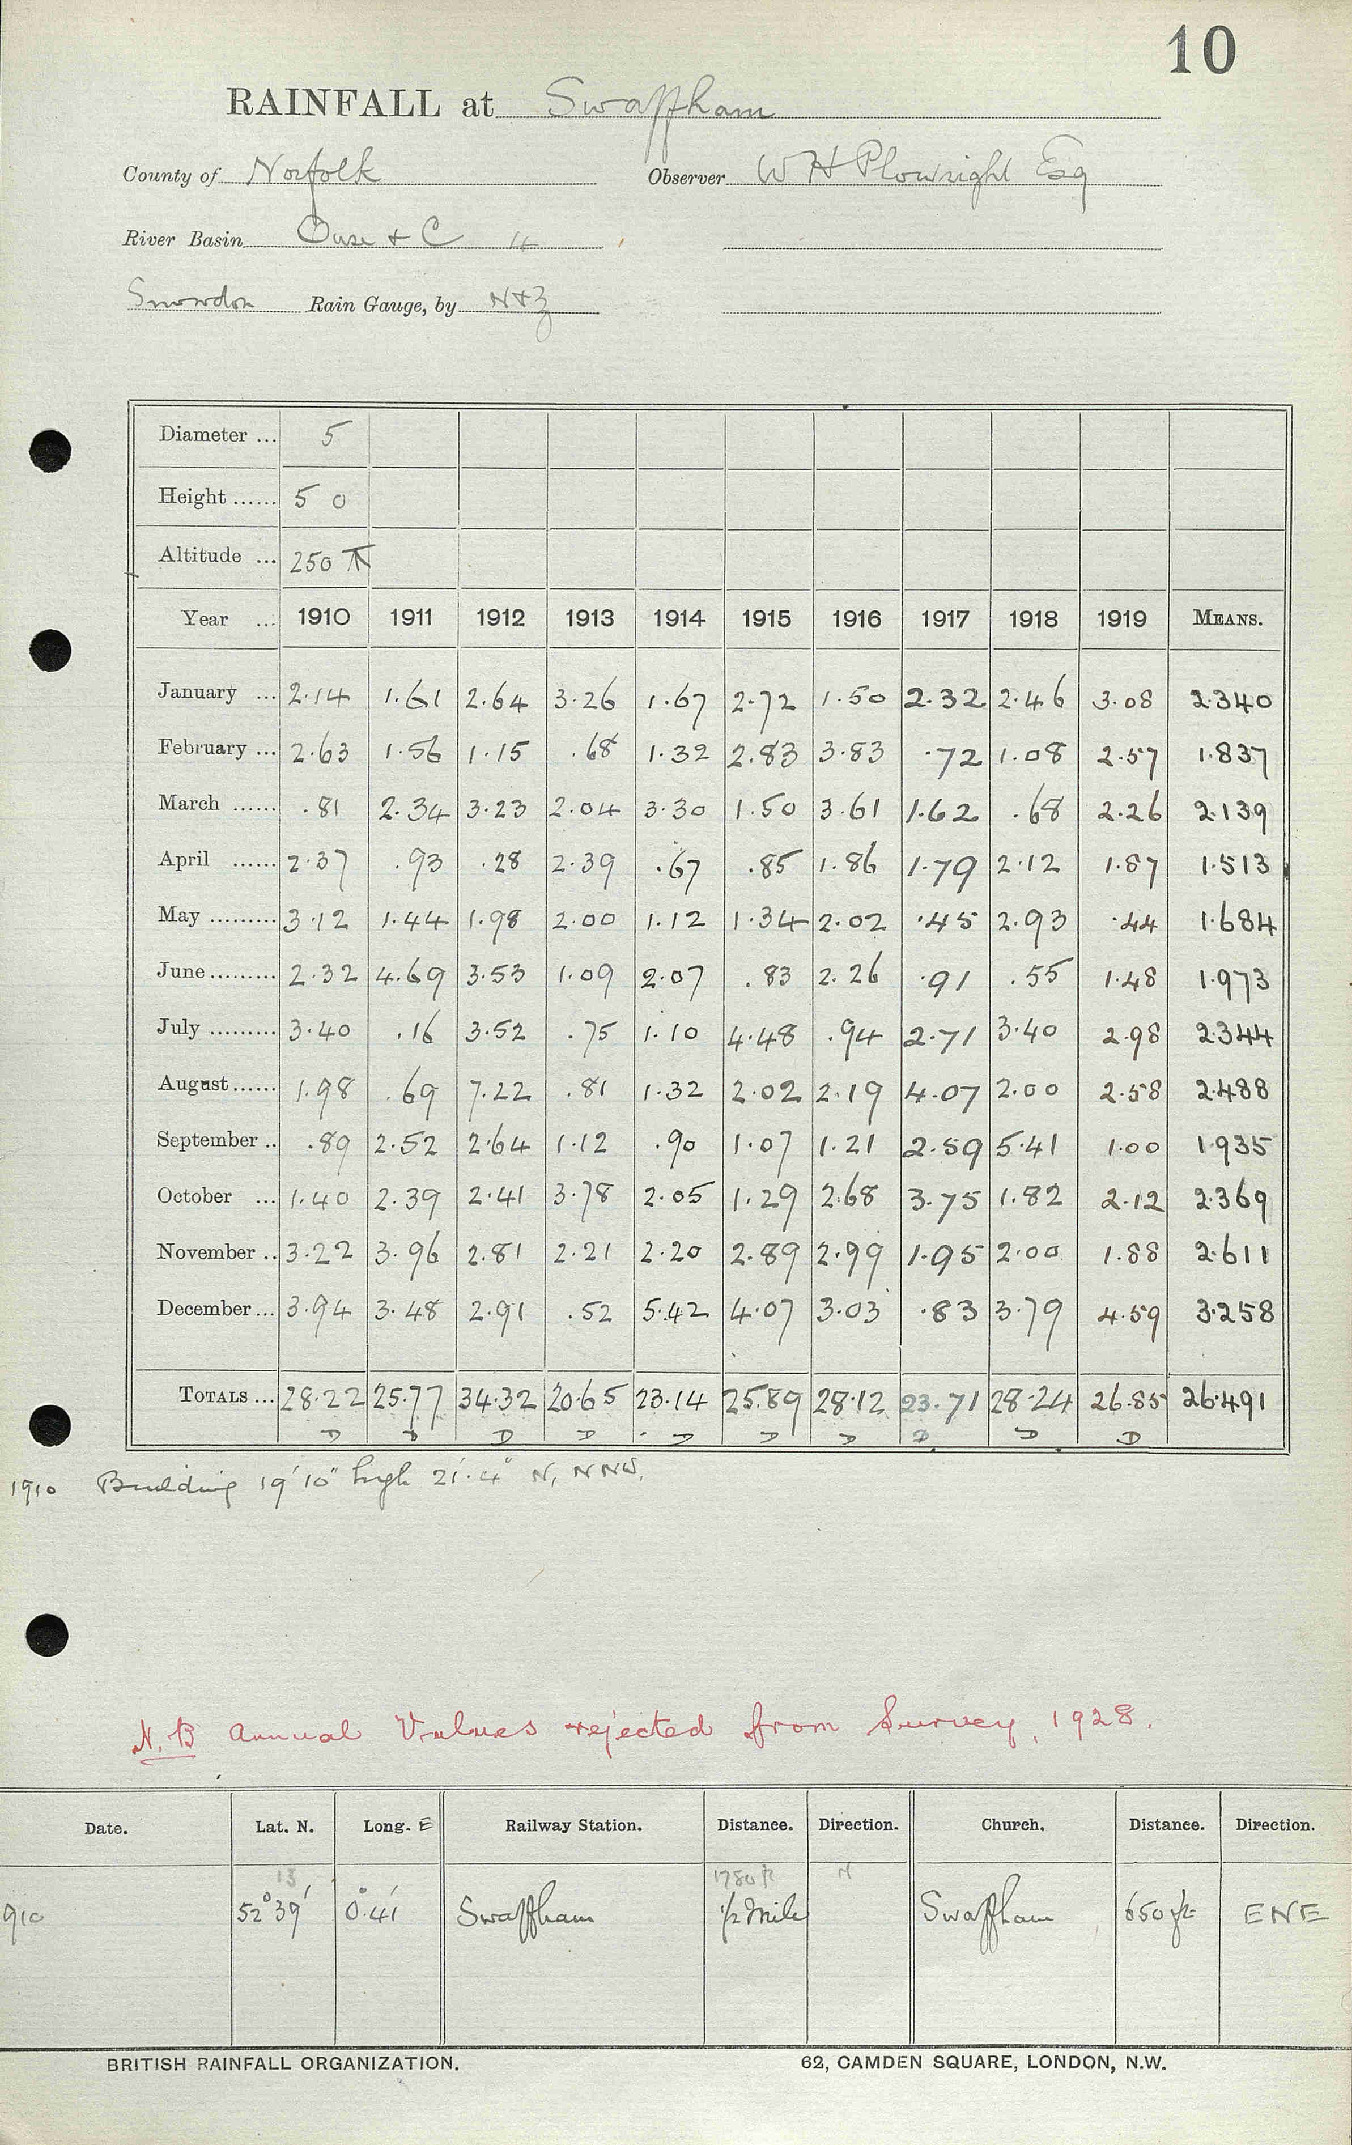 10
RAINFALL at Swaffham
County of Norfolk Observer W H Plowright Esq
River Basin Ouse + C 4
Snowdon Rain Gauge, by N+Z
Diameter ... 5
Height ...... 5 0
Altitude ... 250
Year ... 1910 1911 1912 1913 1914 1915 1916 1917 1918 1919 MEANS.
January ... 2.14 1.61 2.64 3.26 1.67 2.72 1.50 2.32 2.46 3.08 2.340
February ... 2.63 1.56 1.15 .68 1.32 2.83 3.83 .72 1.08 2.57 1.837
March ...... .81 2.34 3.23 2.04 3.30 1.50 3.61 1.62 .68 2.26 2.139
April ...... 2.37 .93 .28 2.39 .67 .85 1.86 1.79 2.12 1.87 1.513
May ......... 3.12 1.44 1.98 2.00 1.12 1.34 2.02 .45 2.93 .44 1.684
June ......... 2.32 4.69 3.53 1.09 2.07 .83 2.26 .91 .55 1.48 1.973
July ......... 3.40 .16 3.52 .75 1.10 4.48 .94 2.71 3.40 2.98 2.344
August ...... 1.98 .69 7.22 .81 1.32 2.02 2.19 4.07 2.00 2.58 2.488
September .. .89 2.52 2.64 1.12 .90 1.07 1.21 2.59 5.41 1.00 1.935
October ... 1.40 2.39 2.41 3.78 2.05 1.29 2.68 3.75 1.82 2.12 2.369
November .. 3.22 3.96 2.81 2.21 2.20 2.89 2.99 1.95 2.00 1.88 2.611
December ... 3.94 3.48 2.91 .52 5.42 4.07 3.03 .83 3.79 4.59 3.258
TOTALS ... 28.22 25.77 34.32 20.65 23.14 25.89 28.12 23.71 28.24 26.85 26.491
D D D D D D D D D D
1910 Building 19'10" high 21'.4" N, NNW.
N.B Annual Values rejected from Survey, 1928.
Date. Lat. N. Long. E Railway Station. Distance. Direction. Church. Distance. Direction.
13 1780 ft N
910 52°39' 0°.41' Swaffham 1/2 Mile Swaffham 650 ft ENE
BRITISH RAINFALL ORGANIZATION. 62, CAMDEN SQUARE, LONDON, N.W.